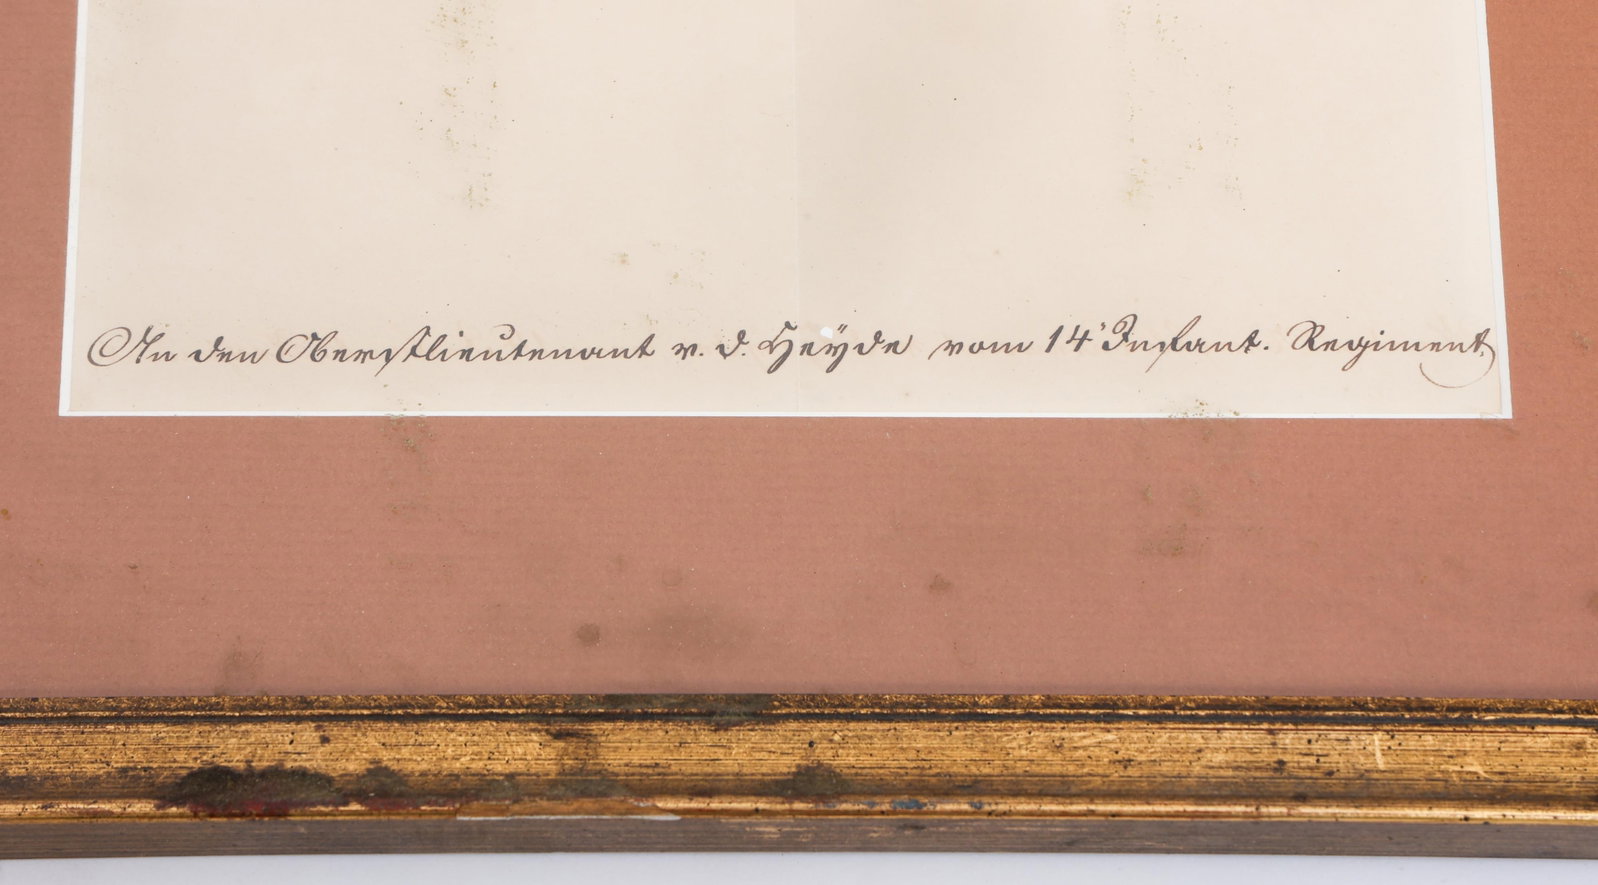 An den Oberstlieutenant v. d. Heÿde vom 14' Infant. Regiment.